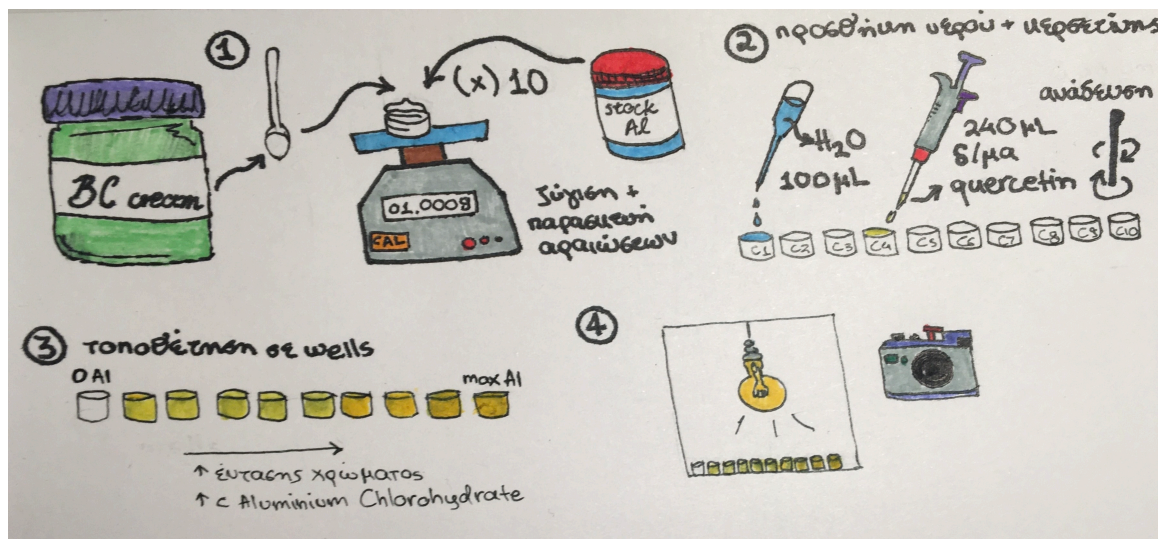 1
BC cream
(x) 10
stock
Al
01.0008
CAL
ζύγιση +
παρασκευή
αραιώσεων
2 προσθήκη νερού + κερσετίνης
ανάδευση
H2O
100μL
240μL
δ/μα
quercetin
C1 C2 C3 C4 C5 C6 C7 C8 C9 C10
3 τοποθέτηση σε wells
0 Al
max Al
↑ έντασης χρώματος
↑ c Aluminium Chlorohydrate
4